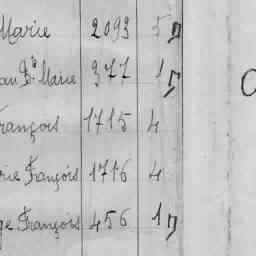 Marie 2093 5
Marie 377 1
rançois 1715 4
rie François 1716 4
ge François 456 1